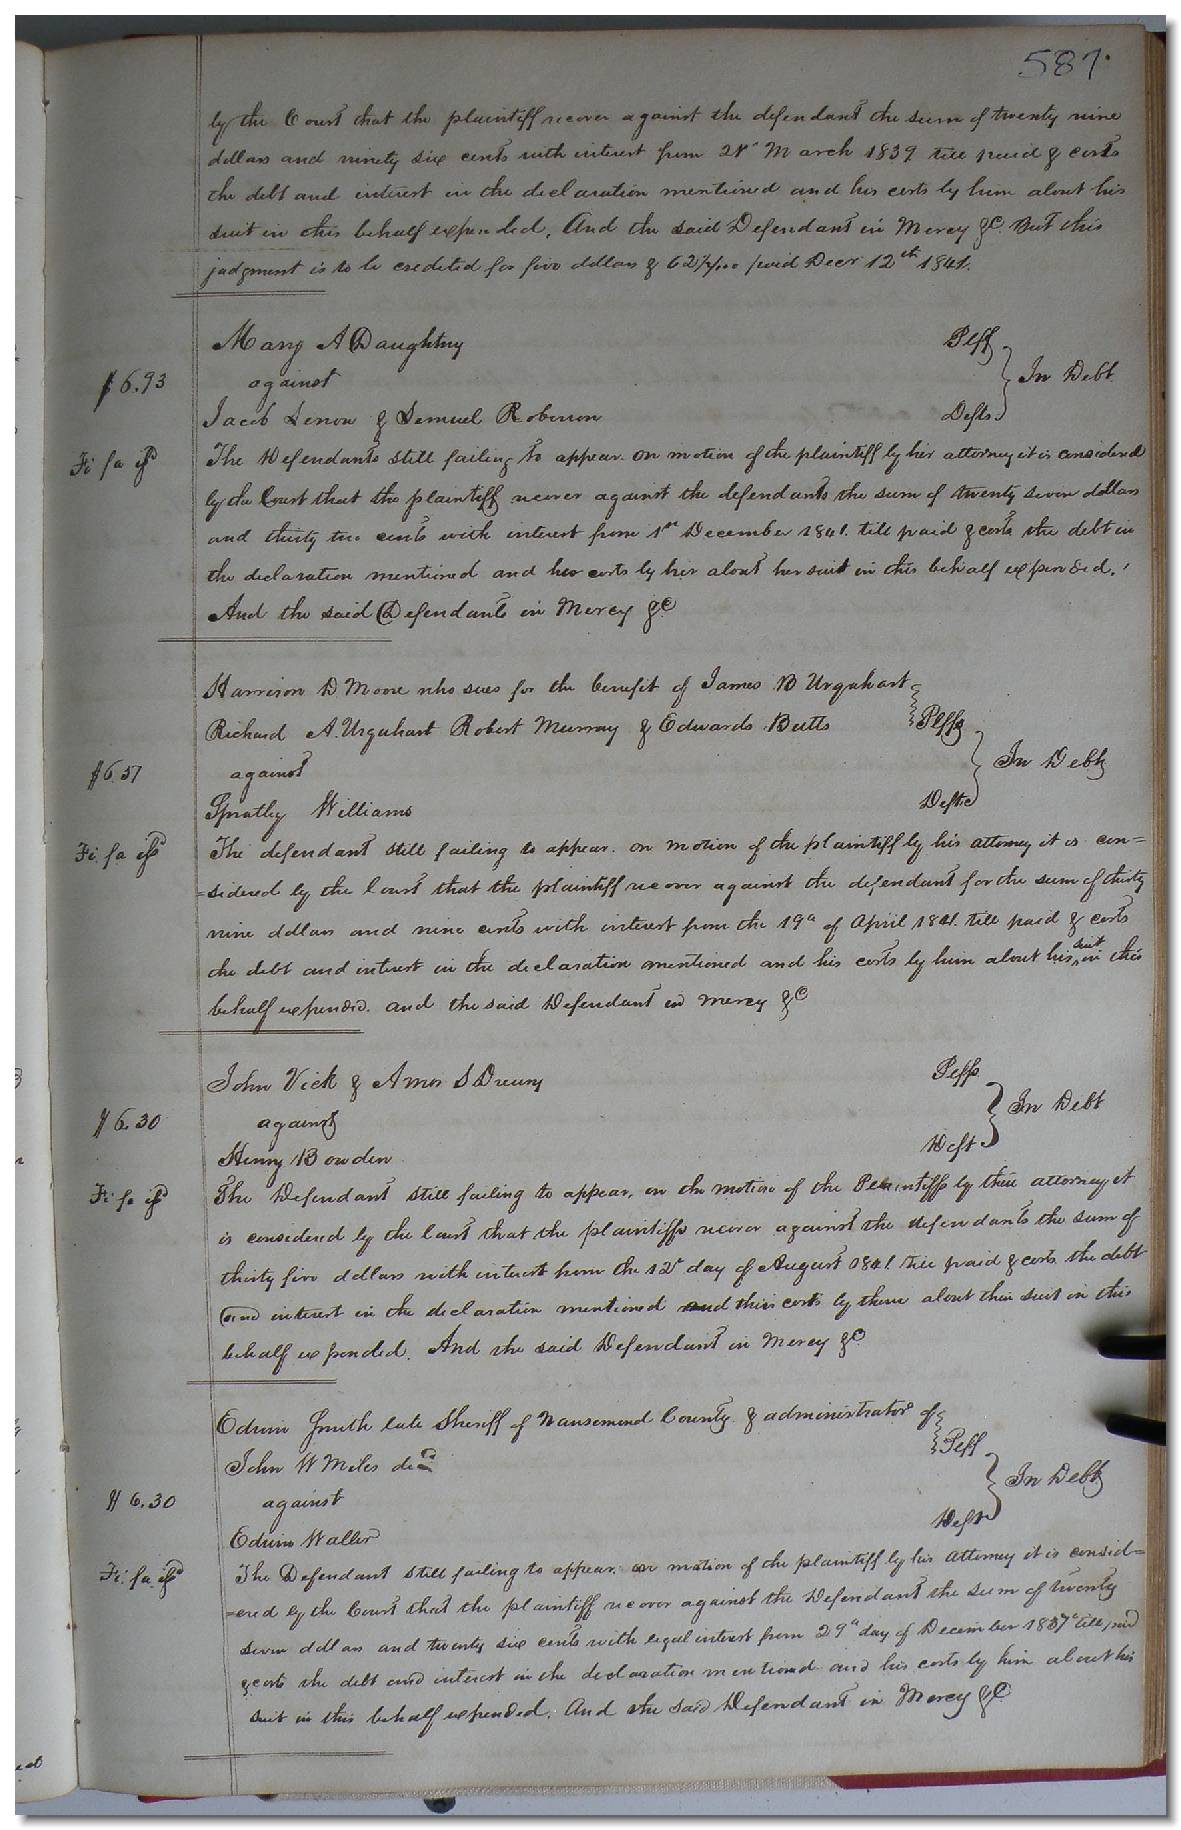 587.
by the Court that the plaintiff recover against the defendant the sum of twenty nine
dollars and ninety six cents with interest from March 1839 till paid & costs
the debt and interest in the declaration mentioned and his costs by him about his
suit in this behalf expended. And the said Defendant in Mercy &c. But this
judgment is to be credited for five dollars & 62½/100 paid Decr 12th 1841.
Mary A Daughtry Plff
$6.93 against In Debt
Jacob & Samuel Roberson Defts.
Fi fa isd The Defendants still failing to appear. on motion of the plaintiff by her attorney it is considered
by the Court that the plaintiff recover against the defendants the sum of twenty seven dollars
and thirty two cents with interest from 1st December 1841. till paid & costs the debt in
the declaration mentioned and her costs by her about her suit in this behalf expended.
And the said Defendants in Mercy &c
Harrison D Moore who sues for the benefit of James B Urquhart
Richard A. Urquhart Robert Murray & Edwards Butts Plffs
$6.57 against In Debt
Spratley Williams Deft
Fi. fa isd The defendant still failing to appear. on motion of the plaintiff by his attorney it is con=
=sidered by the Court that the plaintiff recover against the defendant for the sum of thirty
nine dollars and nine cents with interest from the 19th of April 1841. till paid & costs
the debt and interest in the declaration mentioned and his costs by him about his suit in this
behalf expended. and the said Defendant in mercy &c
John Vick & Amos S Drewry Plffs
$6.30 against In Debt
Henry Bowden Deft
Fi fa isd The Defendant still failing to appear, on the motion of the Plaintiffs by their attorney it
is considered by the Court that the plaintiffs recover against the defendants the sum of
thirty five dollars with interest from the 12th day of August 1841. till paid & costs the debt
and interest in the declaration mentioned and their costs by them about their suit in this
behalf expended. And the said Defendant in Mercy &c
Edwin Smith late Sheriff of Nansemond County & administrator of
John W Miles decd Plff
$6.30 against In Debt
Edwin Waller Deft
Fi. fa. isd The Defendant still failing to appear. on motion of the plaintiff by his attorney it is consid=
=ered by the Court that the plaintiff recover against the Defendant the sum of twenty
seven dollars and twenty six cents with legal interest from 29th day of December 1837 till paid
& costs the debt and interest in the declaration mentioned and his costs by him about his
suit in this behalf expended. And the said Defendant in Mercy &c